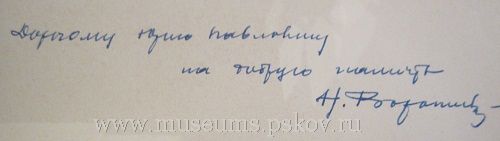 Дорогому Юрию Павловичу
на добрую память
Н.
www.museums.pskov.ru